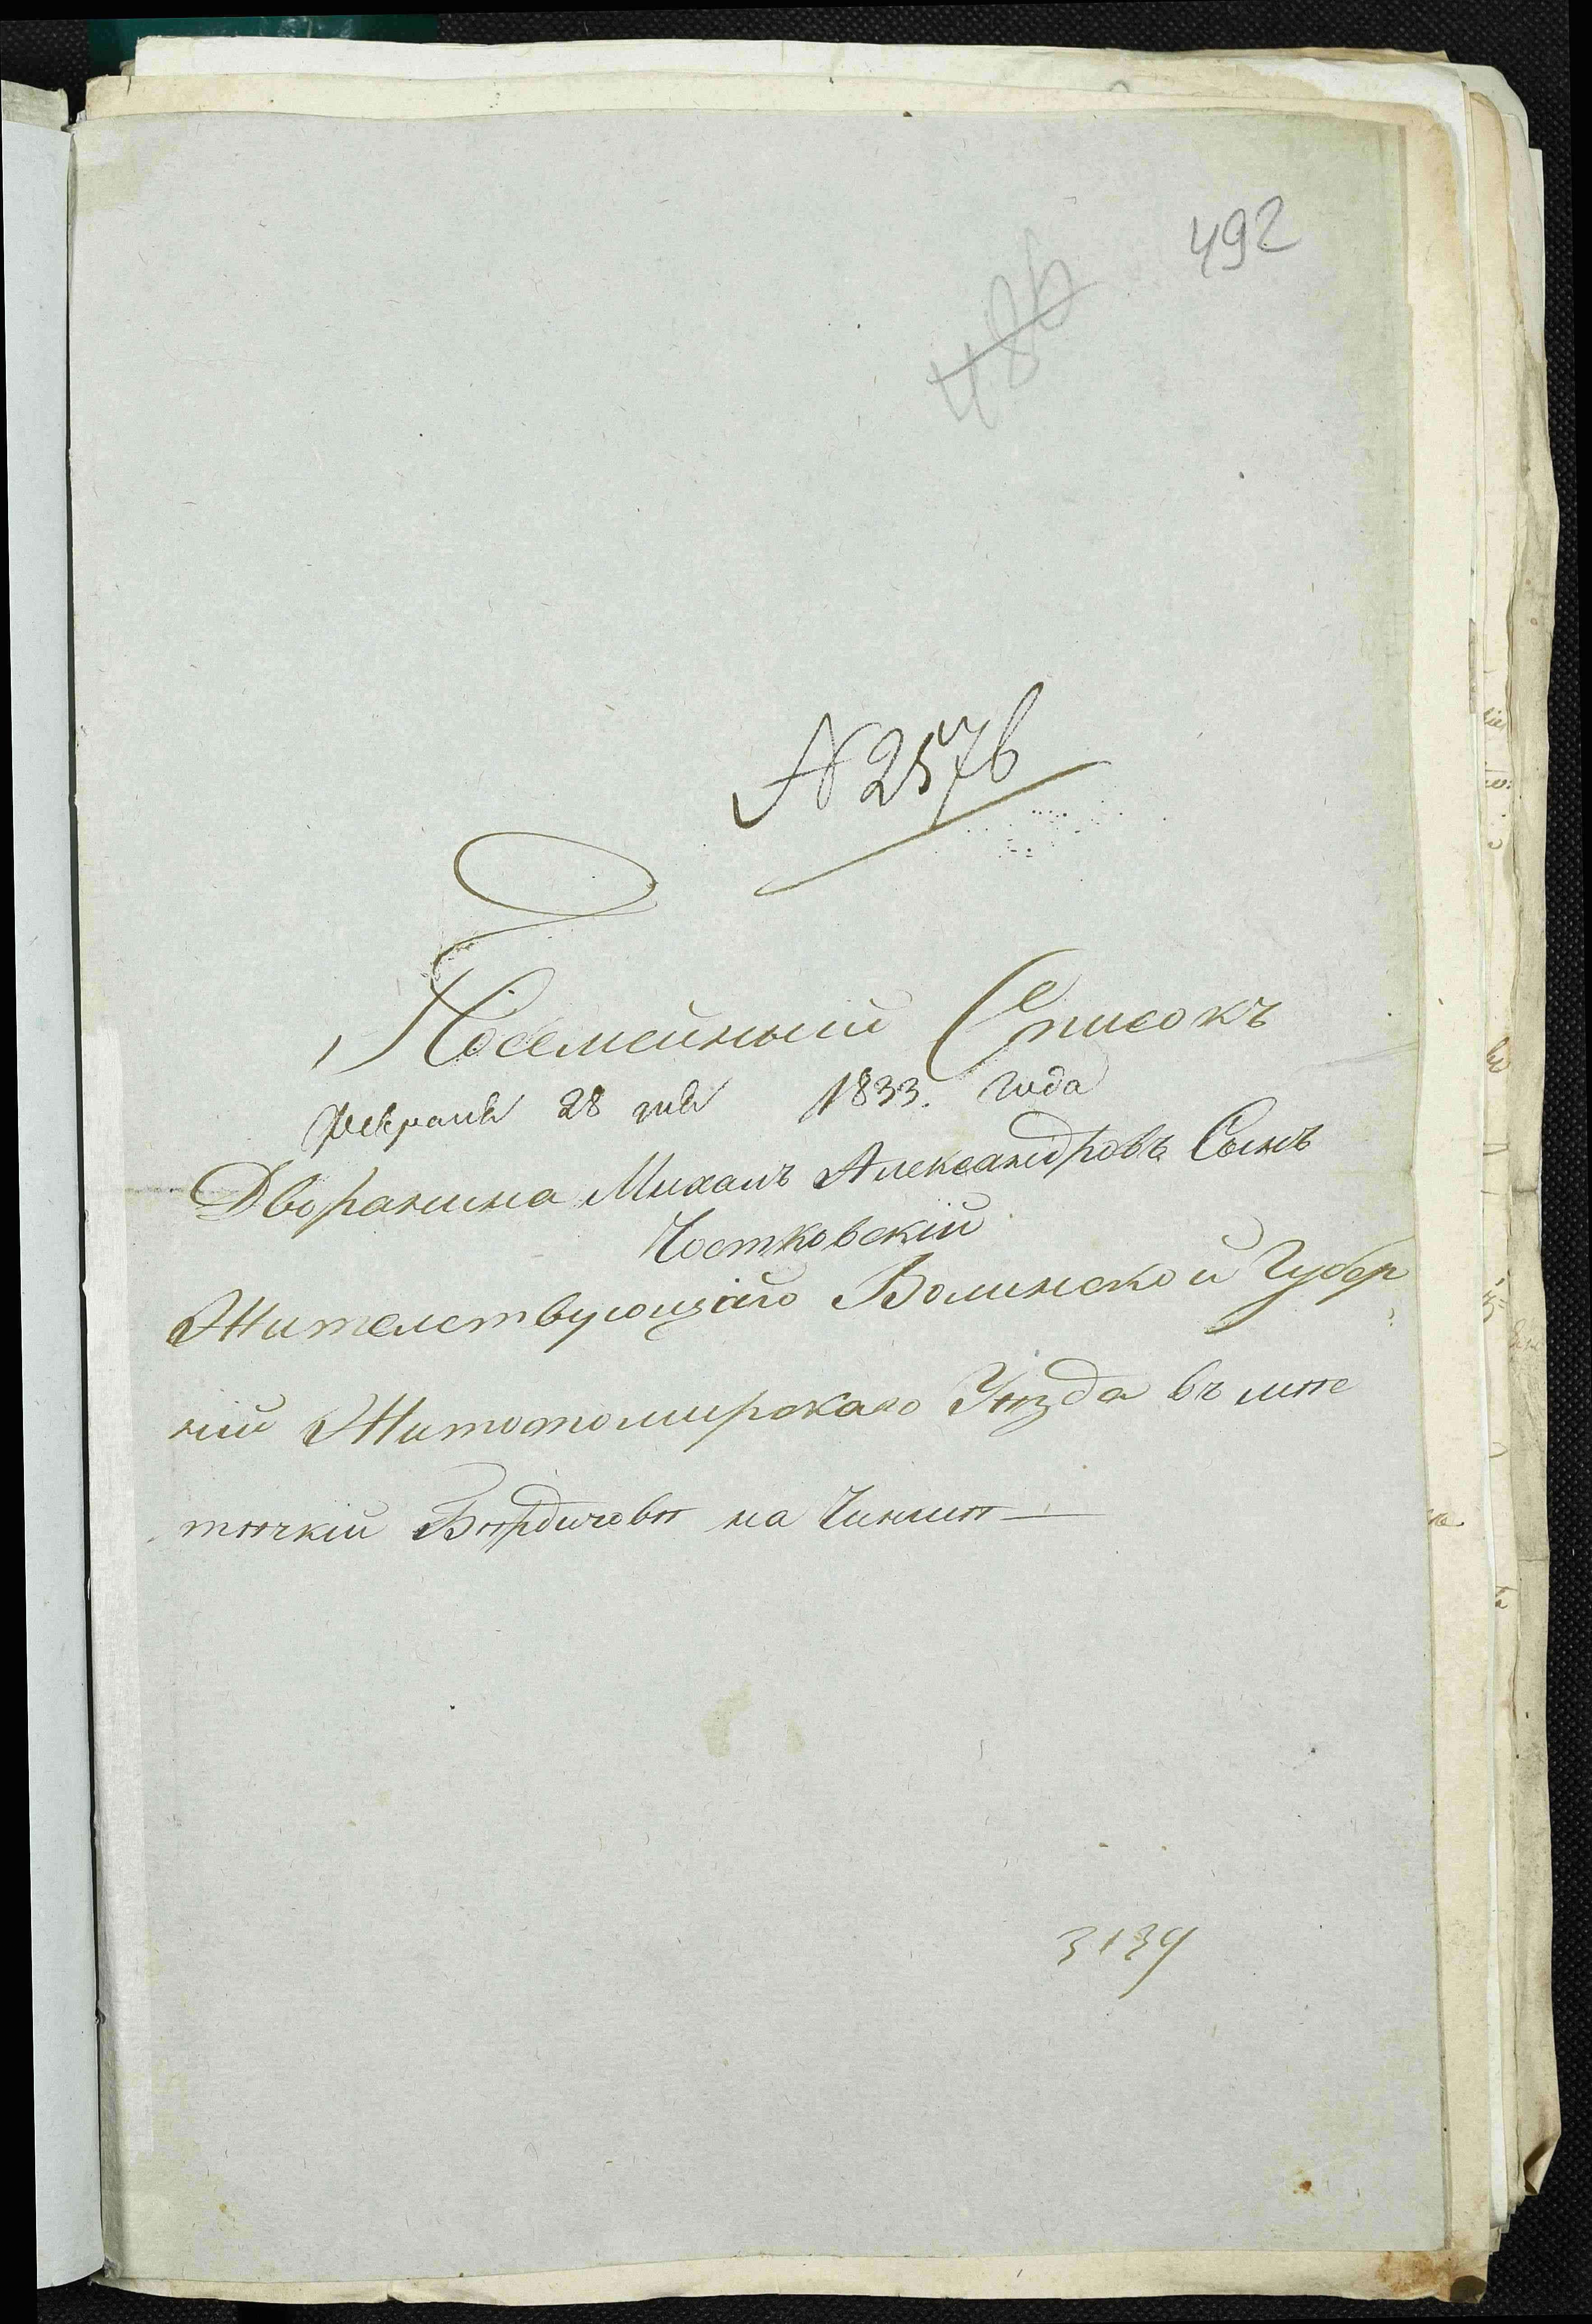 492
486
N 2576
Посемейный Списокъ
Февраля 28 дня 1833. года
Дворанина Михалъ Александровъ Сынъ
Чостковскій
Жителствующаго Волинской Губер
ній Житотомирскаго Уѣзда въ мѣс
тѣчкій Бѣрдичевѣ на Чиншѣ
3139